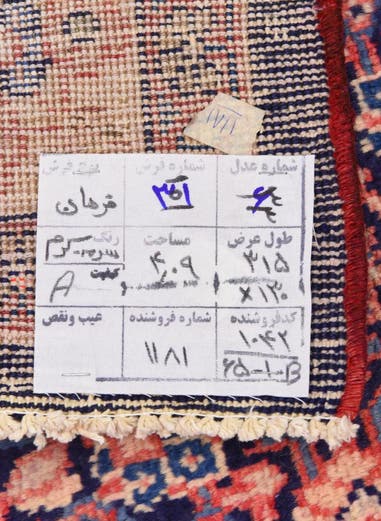 شماره عدل شماره فرش نوع فرش
۳۵۱ فرهان
طول عرض مساحت رنگ
۳۱۵ ۴,۰۹ سرمه - کرم
×۱۳۰ کیفیت A
کدفروشنده شماره فروشنده عیب ونقص
۱۰۴۲ ۱۱۸۱
۶۵-۱-B